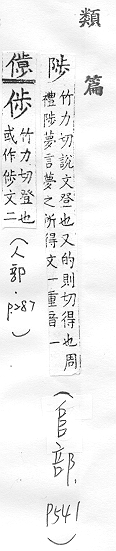 類篇
陟 竹力切說文登也又的則切得也周
禮陟夢言夢之所得文一重音一
(𨸏部.p541)
㥀 𢓜 竹力切登也
或作𢓜文二
(人部.p287)